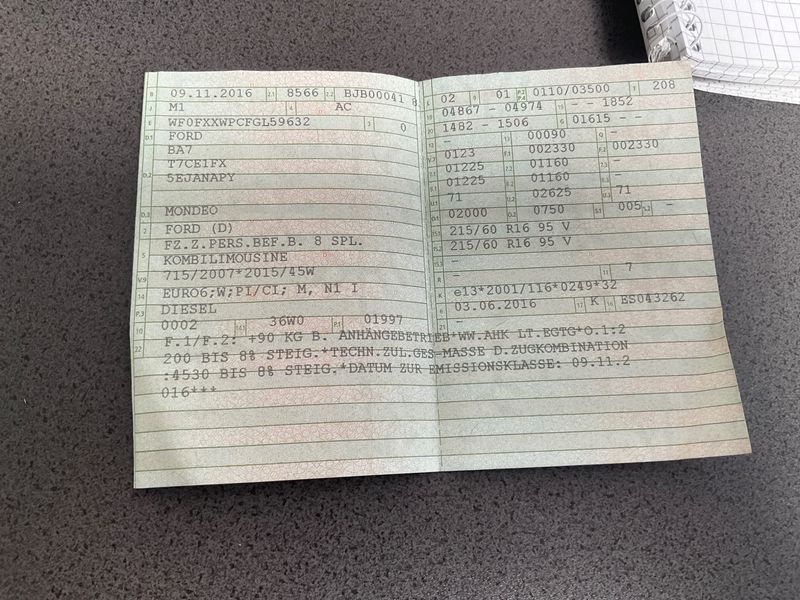 B 09.11.2016 2.1 8566 2.2 BJB00041 8
J M1 4 AC
E WF0FXXWPCFGL59632 3 0
D.1 FORD
BA7
D.2 T7CE1FX
5EJANAPY
D.3 MONDEO
2 FORD (D)
5 FZ.Z.PERS.BEF.B. 8 SPL.
KOMBILIMOUSINE
V.9 715/2007*2015/45W
14 EURO6;W;PI/CI; M, N1 I
P.3 DIESEL
10 0002 14.1 36W0 P.1 01997
L 02 9 01 P.2 P.4 0110/03500 T 208
18 04867 - 04974 19 - - 1852
20 1482 - 1506 G 01615 - -
- 13 00090 Q -
V.7 0123 F.1 002330 F.2 002330
7.1 01225 7.2 01160 7.3 -
8.1 01225 8.2 01160 8.3 -
U.1 71 U.2 02625 U.3 71
O.1 02000 O.2 0750 S.1 005 S.2 -
15.1 215/60 R16 95 V
15.2 215/60 R16 95 V
15.3 -
R - 11 7
K e13*2001/116*0249*32
6 03.06.2016 17 K 16 ES043262
21 -
22 F.1/F.2: +90 KG B. ANHÄNGEBETRIEB*WW.AHK LT.EGTG*O.1:2
200 BIS 8% STEIG.*TECHN.ZUL.GES-MASSE D.ZUGKOMBINATION
:4530 BIS 8% STEIG.*DATUM ZUR EMISSIONSKLASSE: 09.11.2
016***